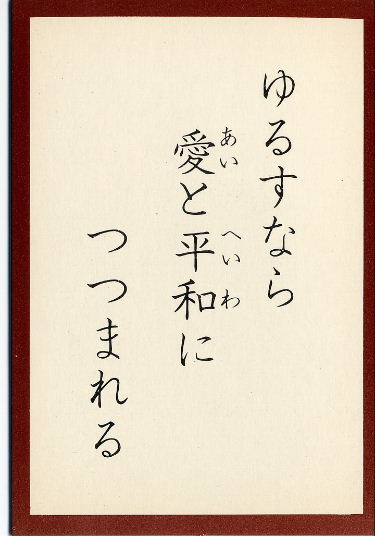 ゆるすなら
愛と平和に
あい へいわ
つつまれる